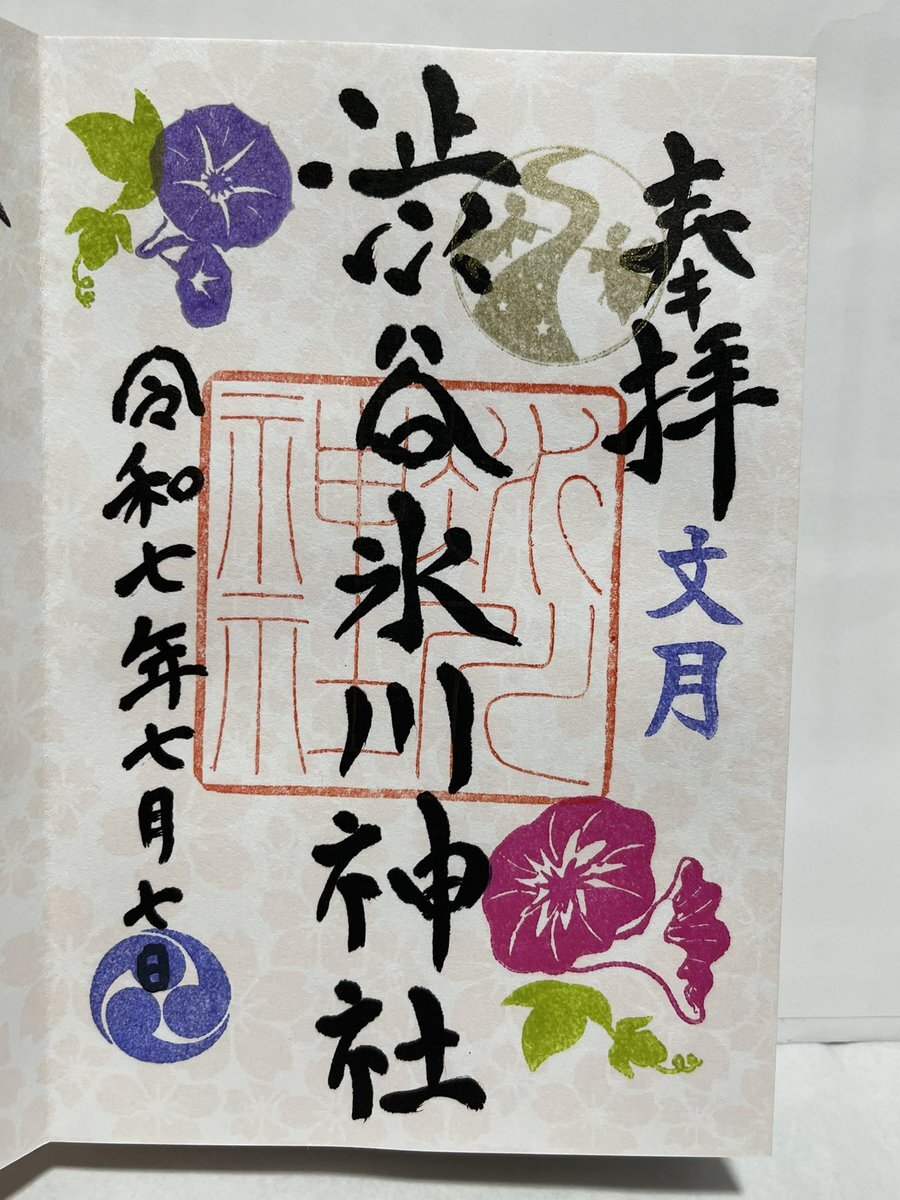 奉拝
文月
渋谷氷川神社
氷川神社
令和七年七月七日